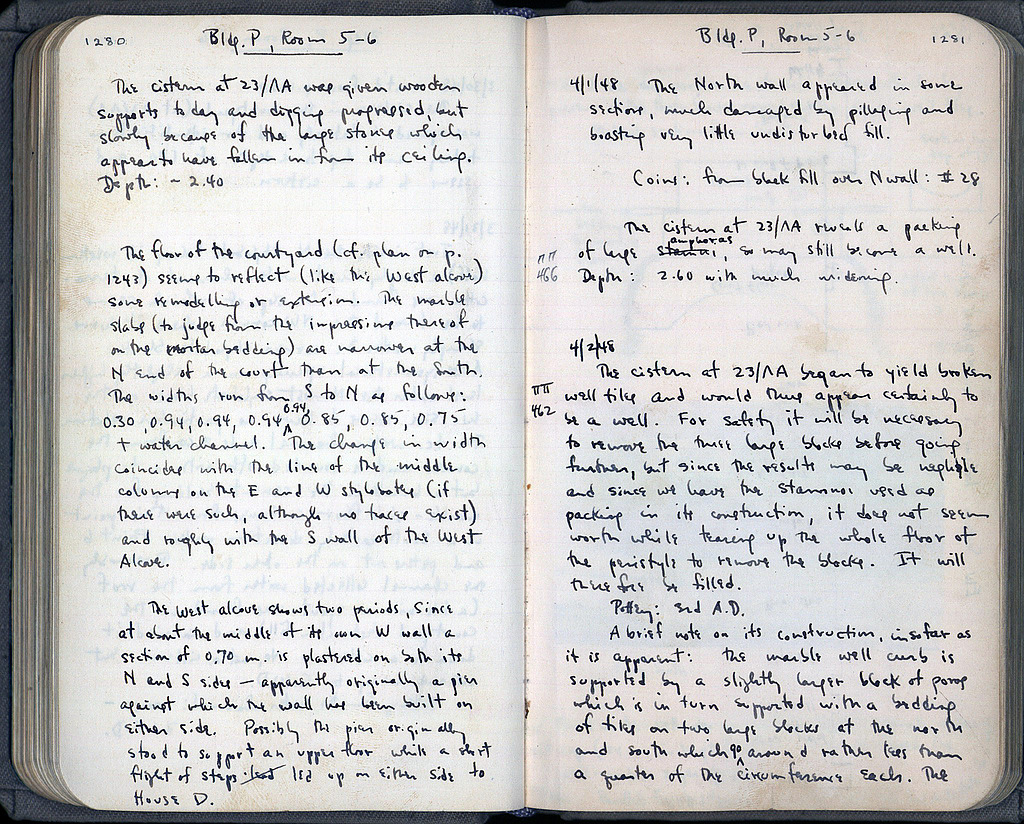 1280
Bldg. P, Room 5-6
The cistern at 23/ΛΑ was given wooden
supports today and digging progressed, but
slowly because of the large stones which
appear to have fallen in from its ceiling.
Depth: ~ 2.40
The floor of the courtyard (cf. plan on p.
1243) seems to reflect (like the West alcove)
some remodelling or extension. The marble
slabs (to judge from the impressions thereof
on the mortar bedding) are narrower at the
N end of the court than at the South.
The widths run from S to N as follows:
0.30, 0.94, 0.94, 0.94, 0.94, 0.85, 0.85, 0.75
+ water channel. The change in width
coincides with the line of the middle
columns on the E and W stylobates (if
there were such, although no traces exist)
and roughly with the S wall of the West
Alcove.
The West alcove shows two periods, since
at about the middle of its own W wall a
section of 0.70 m. is plastered on both its
N and S sides — apparently originally a pier
against which the wall has been built on
either side. Possibly the pier originally
stood to support an upper floor while a short
flight of steps led up on either side to
House D.
Bldg. P, Room 5-6
1281
4/1/48 The North wall appeared in some
sections, much damaged by pillaging and
boasting very little undisturbed fill.
Coins: from black fill over N wall: #28
The cistern at 23/ΛΑ reveals a packing
of large stamnoi amphoras, so may still become a well.
ΠΠ
466
Depth: 2.60 with much widening.
4/2/48
The cistern at 23/ΛΑ began to yield broken
ΠΠ
462
well tiles and would thus appear certainly to
be a well. For safety it will be necessary
to remove the three large blocks before going
further, but since the results may be negligible
and since we have the stamnoi used as
packing in its construction, it does not seem
worth while tearing up the whole floor of
the peristyle to remove the blocks. It will
therefore be filled.
Pottery: 3rd A.D.
A brief note on its construction, insofar as
it is apparent: the marble well curb is
supported by a slightly larger block of poros
which is in turn supported with a bedding
of tiles on two large blocks at the north
and south which go around rather less than
a quarter of the circumference each. The